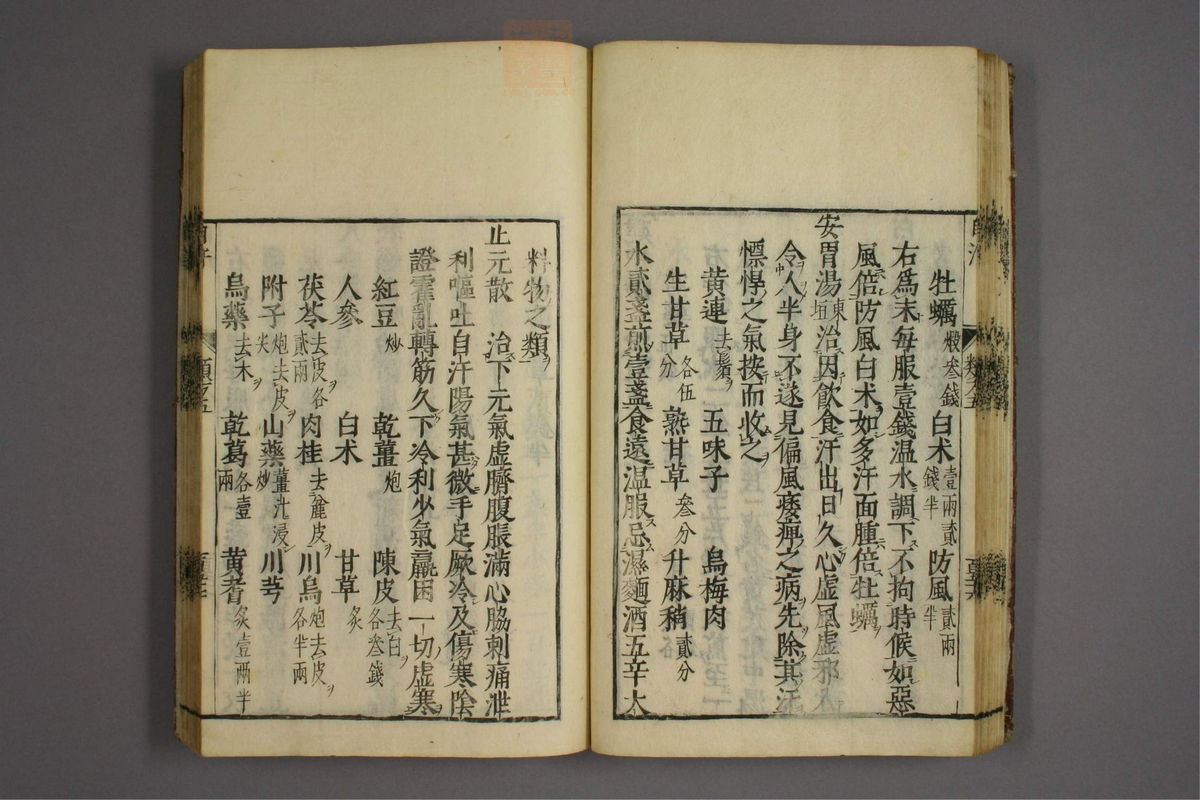 牡蠣煅叄錢 白术壹兩貳錢半 防風貳兩半
右爲末每服壹錢温水調下不拘時候如惡
風倍防風白术如多汗面腫倍牡蠣
安胃湯東垣治因飲食汗出日久心虛風虛邪
令人半身不遂見偏風痿痹之病先除其汗
慓悍之氣按而收之
黄連去鬚 五味子 烏梅肉
生甘草各伍分 熟甘草叄分 升麻稍貳分
水貳盞煎壹盞食遠温服忌濕麵酒五辛大
料物之類
正元散 治下元氣虛臍腹脹滿心脇刺痛泄
利嘔吐自汗陽氣甚微手足厥冷及傷寒陰
證霍亂轉筋久下冷利少氣羸困一切虛寒
紅豆炒 乾薑炮 陳皮去白各叄錢
人參 白术 甘草炙
茯苓去皮各貳兩 肉桂去麄皮 川烏炮去皮各半兩
附子炮去皮尖 山藥薑汁浸炒 川芎
烏藥去木 乾葛各壹兩 黄耆炙壹兩半